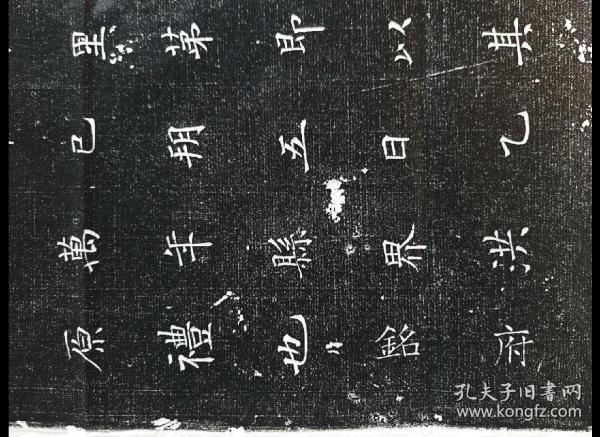 里第即以其
已朔五日乙
萬年縣界洪
原禮也銘府
孔夫子旧书网
www.kongfz.com